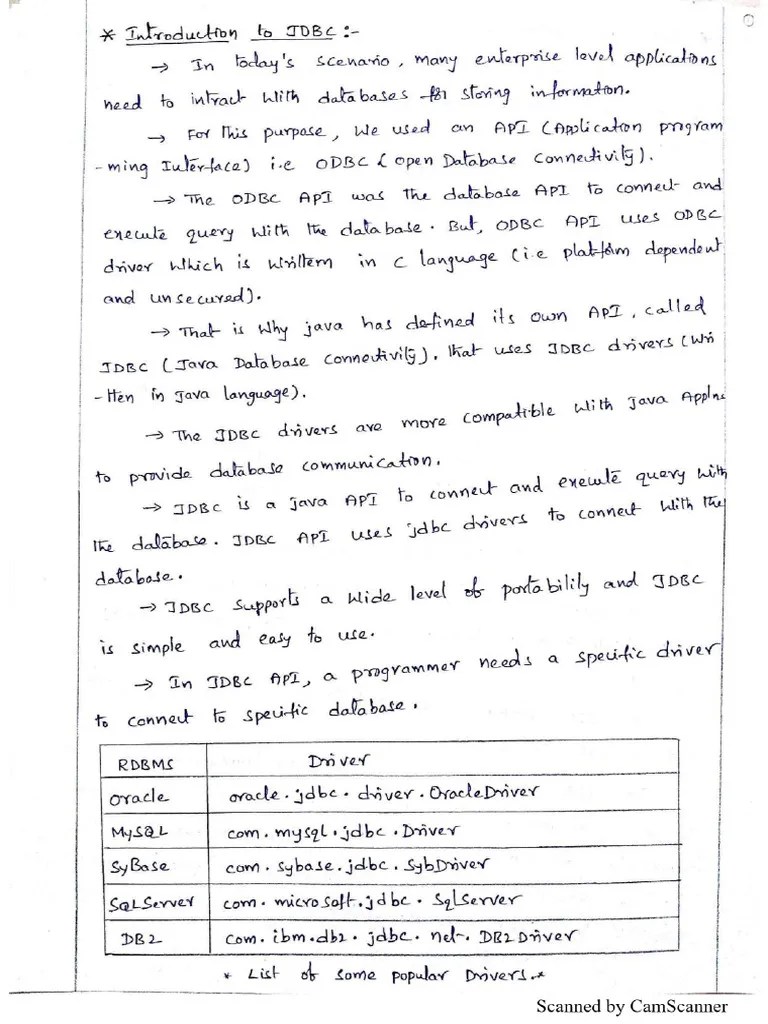 * Introduction to JDBC :-
→ In today's scenario, many enterprise level applications
need to intract with databases for storing information.
→ For this purpose, we used an API (Application program
-ming Interface) i.e ODBC (open Database connectivity).
→ The ODBC API was the database API to connect and
execute query with the database. But, ODBC API uses ODBC
driver which is written in C language (i.e platform dependent
and unsecured).
→ That is why java has defined its own API, called
JDBC (Java Database Connectivity), that uses JDBC drivers (wri
-tten in Java language).
→ The JDBC drivers are more compatible with Java Applns
to provide database communication.
→ JDBC is a java API to connect and execute query with
the database. JDBC API uses jdbc drivers to connect with the
database.
→ JDBC supports a wide level of portability and JDBC
is simple and easy to use.
→ In JDBC API, a programmer needs a specific driver
to connect to specific database.
RDBMS Driver
Oracle oracle.jdbc.driver.OracleDriver
MySQL com.mysql.jdbc.Driver
SyBase com.sybase.jdbc.SybDriver
SQLServer com.microsoft.jdbc.SqlServer
DB2 com.ibm.db2.jdbc.net.DB2Driver
* List of some popular Drivers.*
Scanned by CamScanner